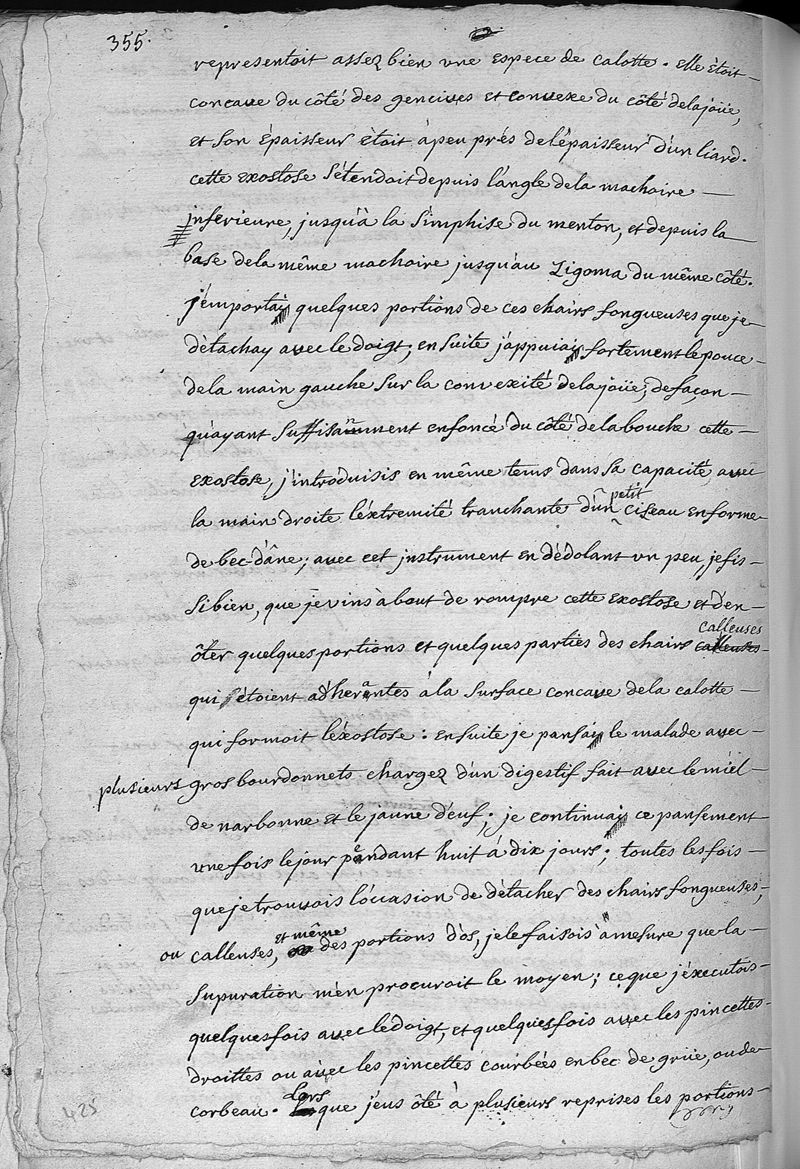 355.
representoit assez bien une espece de calotte. elle étoit
concave du côté des gencives et convexe du côté delajoüe,
et son épaisseur étoit àpeu prés de l'épaisseur d'un liard.
cette exostose s'étendoit depuis l'angle dela machoire
inferieure, jusqu'à la simphise du menton, et depuis la
base dela même machoire jusqu'au zigoma du même côté.
j'emportai quelques portions de ces chairs fongueuses que je
détachay avec le doigt; en suite j'appuiai fortement le pouce
dela main gauche sur la convexité delajoüe, defaçon
qu'ayant suffisamment enfoncé du côté dela bouche cette
exostose, j'introduisis en même tems dans sa capacité, avec
la main droite l'éxtremité tranchante d'un petit ciseau en forme
de bec-d'âne; avec cet instrument en dédolant un peu je fis
si bien, que je vins à bout de rompre cette exostose et d'en
ôter quelques portions et quelques parties des chairs calleuses
qui étoient adherantes à la surface concave dela calotte
qui formoit l'éxostose: ensuite je pansai le malade avec
plusieurs gros bourdonnets chargez d'un digestif fait avec le miel
de narbonne et le jaune d'euf; je continuai ce pansement
une fois le jour pendant huit à dix jours; toutes les fois
que je trouvois l'óccasion de détacher des chairs fongueuses,
ou calleuses, et même des portions d'os, je le faisois à mesure que la
supuration m'en procuroit le moyen; ce que j'éxecutois
quelquesfois avec le doigt, et quelquesfois avec les pincettes
droittes ou avec les pincettes courbées en bec de grüe, ou de
corbeau. Lors que j'eus ôté à plusieurs reprises les portions
425